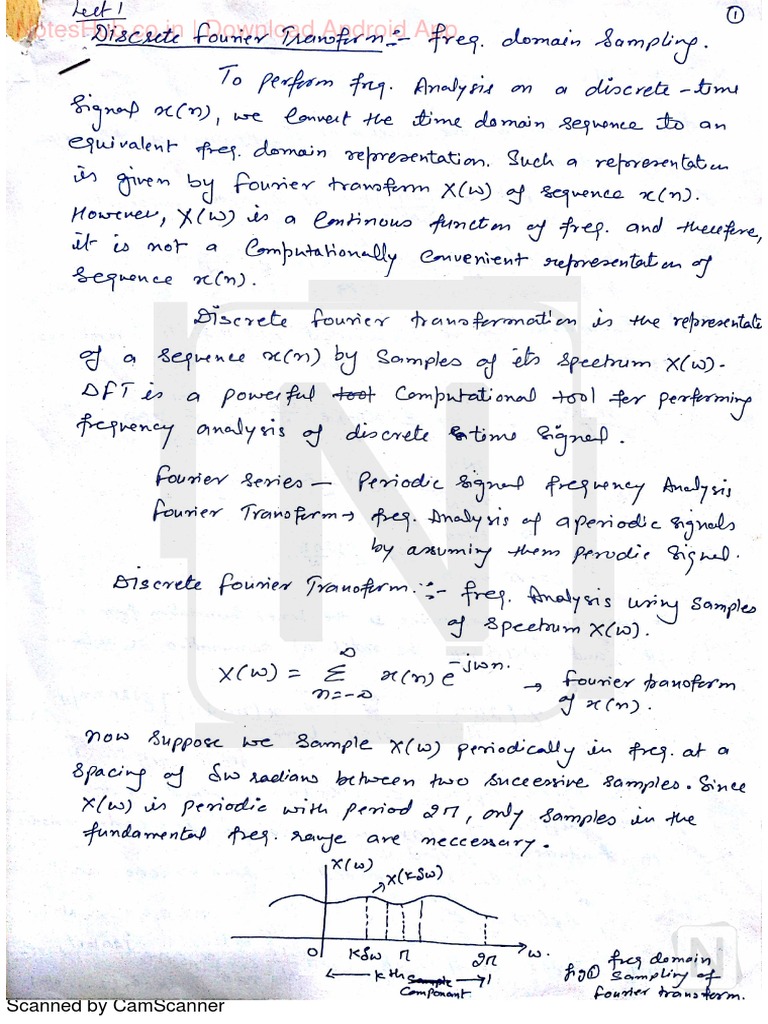 Lect 1
①
NotesHub.co.in | Download Android App
Discrete Fourier Transform:- freq. domain Sampling.
To perform frq. Analysis on a discrete-time
Signal x(n), we Convert the time domain sequence to an
equivalent freq. domain representation. Such a representation
is given by fourier transform X(ω) of sequence x(n).
However, X(ω) is a Continous function of freq. and therefore,
it is not a Computationally Convenient representation of
sequence x(n).
Discrete fourier transformation is the representate
of a sequence x(n) by Samples of its spectrum X(ω).
DFT is a powerful tool Computational tool for performing
frequency analysis of discrete time Signal.
Fourier Series — Periodic Signal frequency Analysis
Fourier Transform → freq. Analysis of aperiodic signals
by assuming them perodic signal.
Discrete fourier Transform.:- freq. Analysis using samples
of spectrum X(ω).
X(ω) = ∞ Σ n=-∞ x(n) e^-jωn. → fourier transform
of x(n).
Now suppose we sample X(ω) periodically in freq. at a
spacing of δω radians between two successive samples. Since
X(ω) is periodic with period 2π, only samples in the
fundamental freq. range are neccessary.
X(ω)
X(kδω)
0 kδω π 2π ω.
kth Sample
Componant
fig① freq domain
Sampling of
fourier transform.
N
Scanned by CamScanner